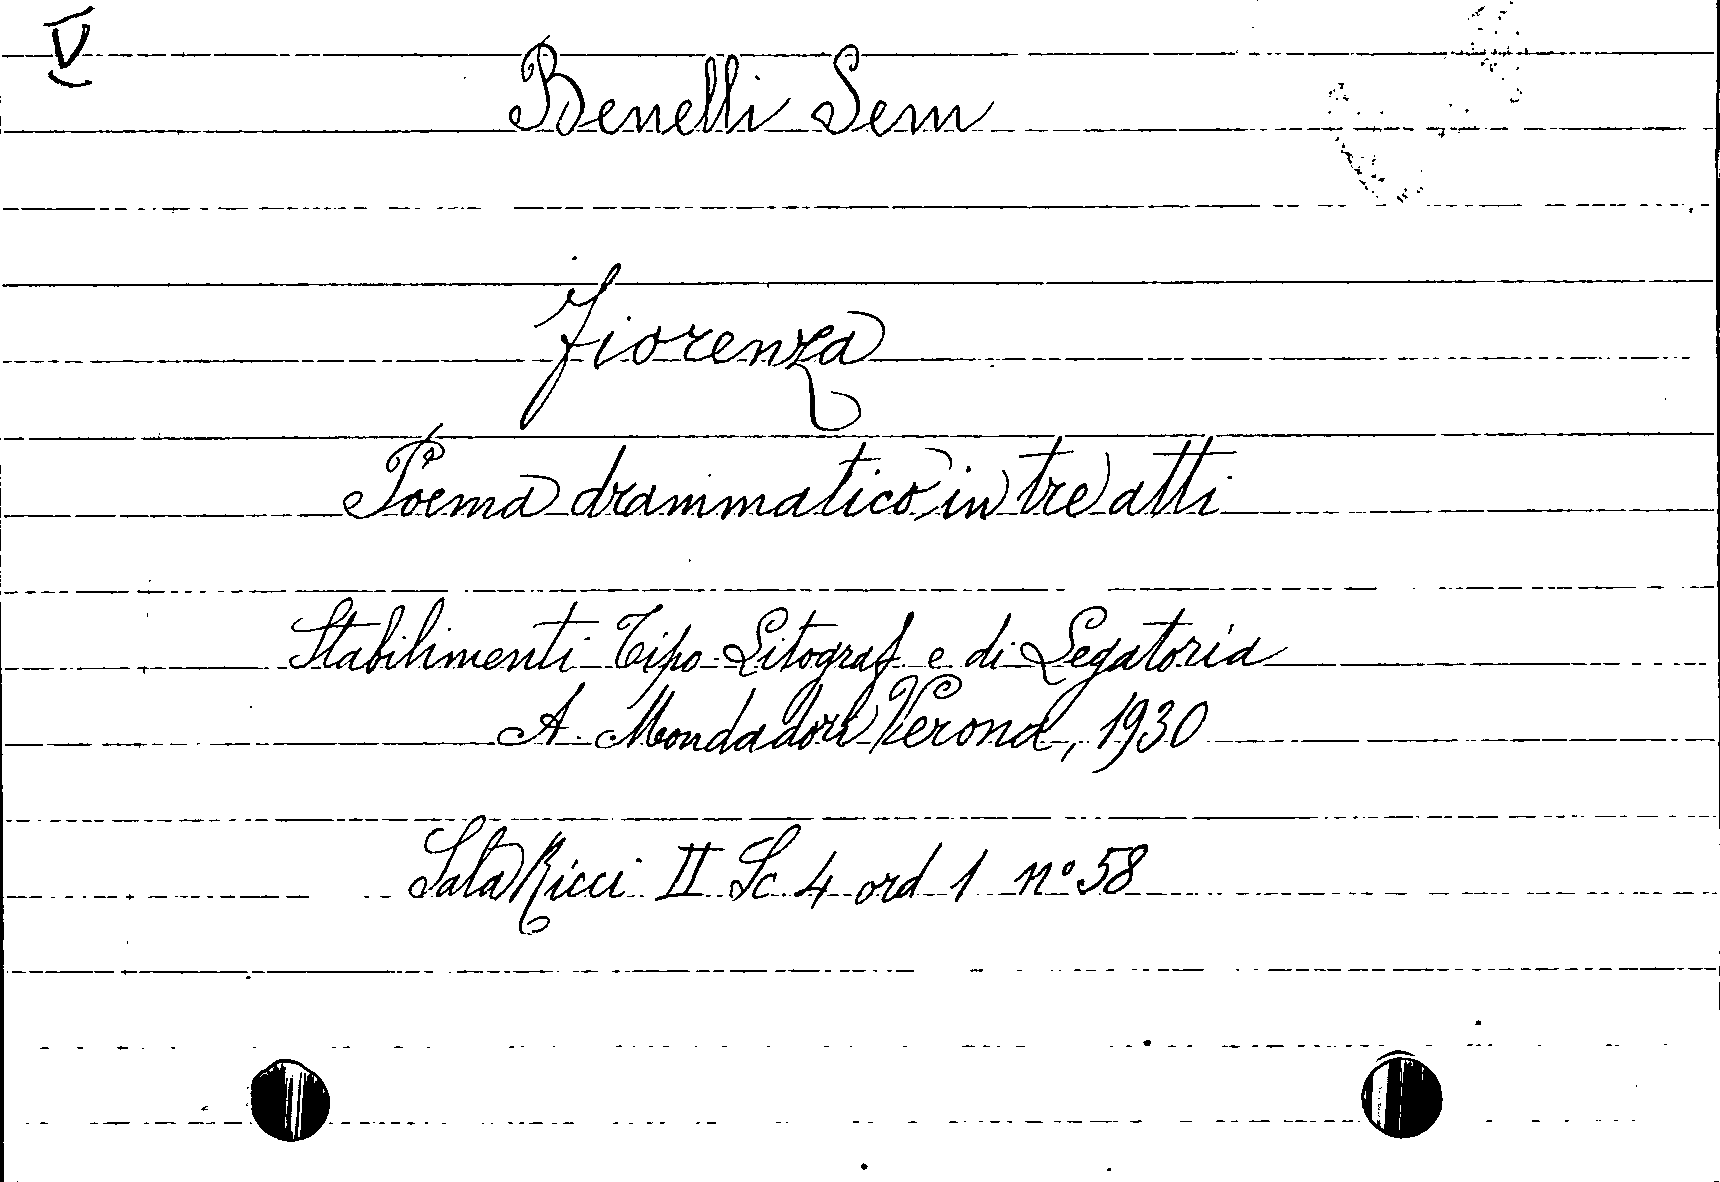 V
Benelli Sem
Fiorenza
Poema drammatico in tre atti
Stabilimenti Tipo-Litograf e di Legatoria
A. Mondadori Verona, 1930
Sala Ricci II Sc 4 ord 1 n° 58